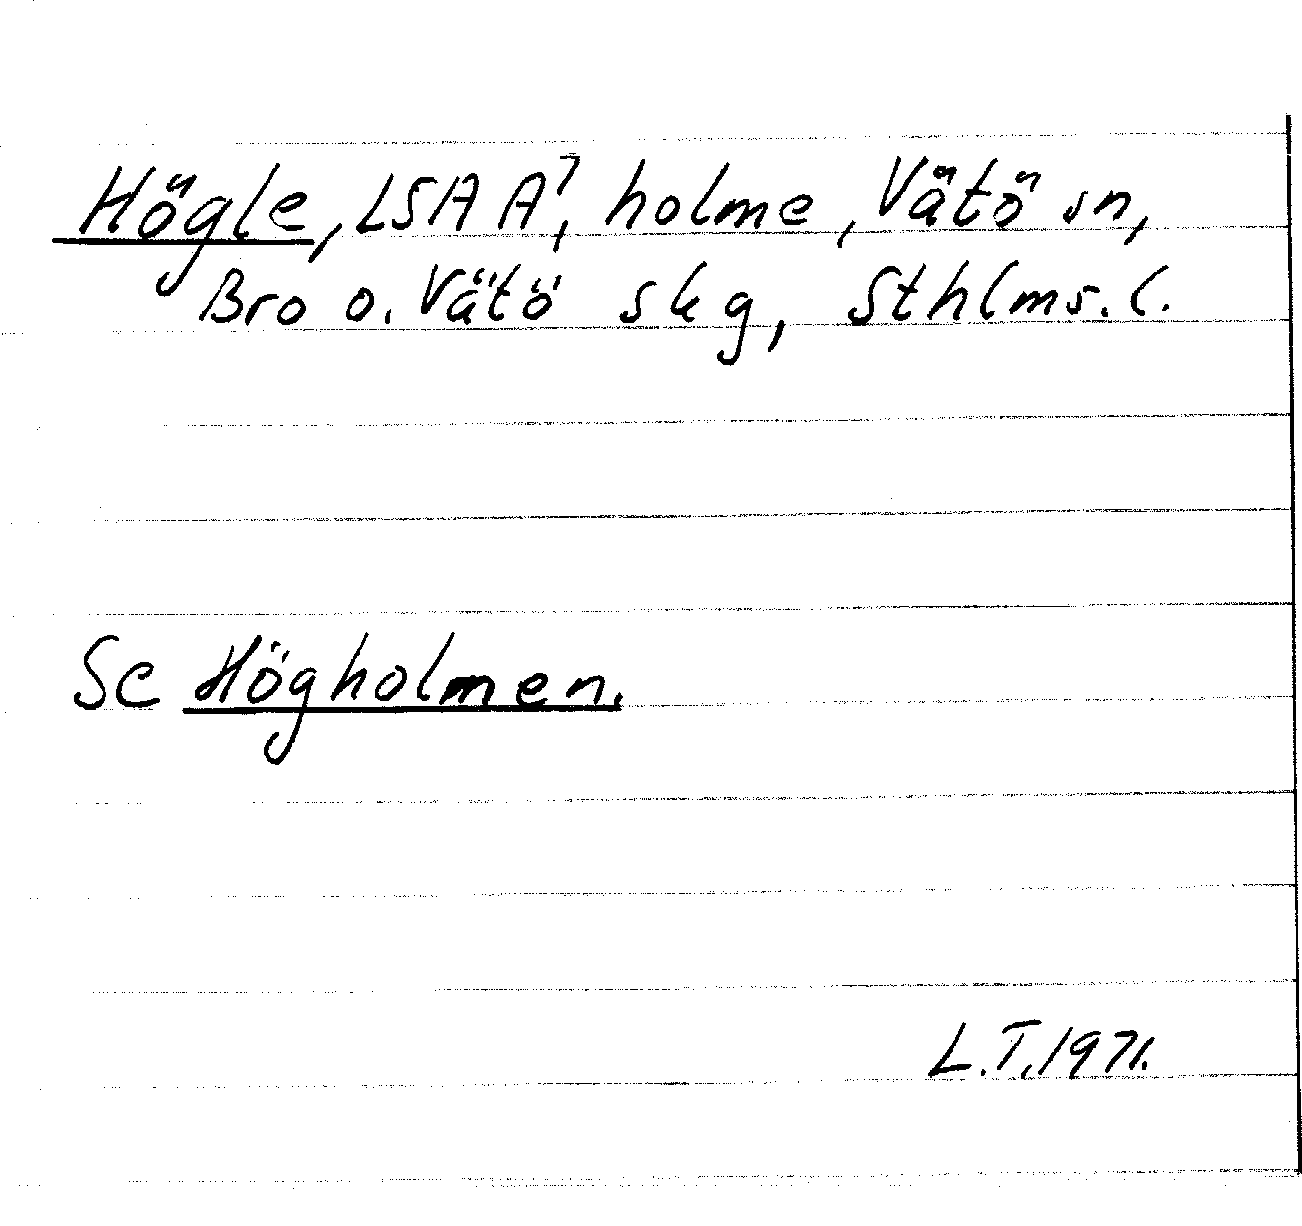 Högle, LSA A⁷, holme, Vätö sn,
Bro o. Vätö skg, Sthlms. l.
Se Högholmen.
L.T. 1971.